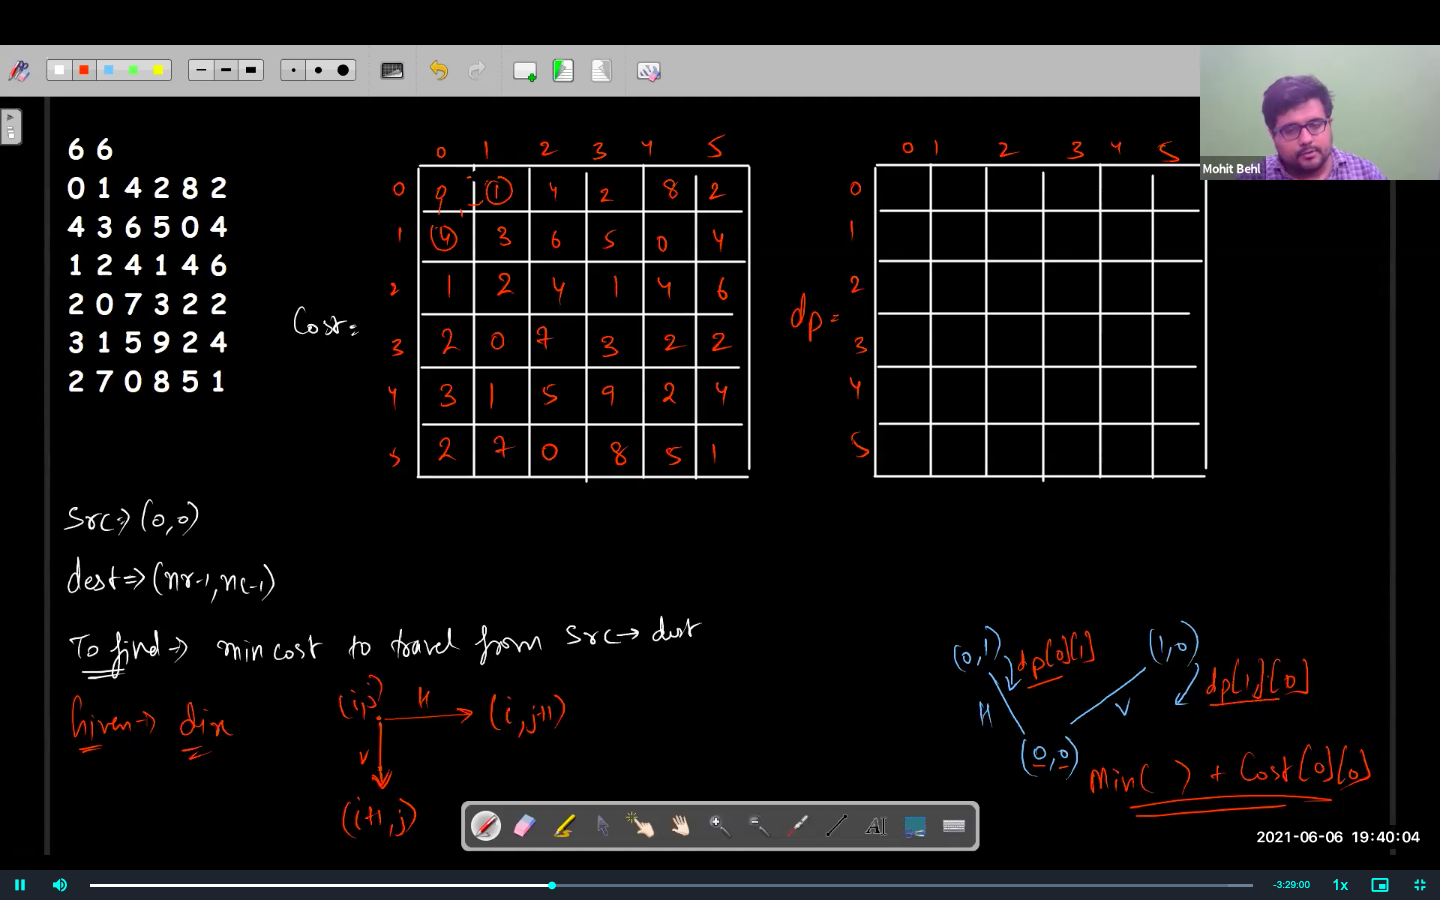 6 6
0 1 4 2 8 2
4 3 6 5 0 4
1 2 4 1 4 6
2 0 7 3 2 2
3 1 5 9 2 4
2 7 0 8 5 1
Cost =
0 1 2 3 4 5
0 0 1 4 2 8 2
1 4 3 6 5 0 4
2 1 2 4 1 4 6
3 2 0 7 3 2 2
4 3 1 5 9 2 4
5 2 7 0 8 5 1
dp =
0 1 2 3 4 5
0
1
2
3
4
5
Mohit Behl
Src => (0,0)
dest => (nr-1, nc-1)
To find => min cost to travel from src → dest
Given → dirn
(i,j) H (i, j+1)
V
(i+1, j)
(0,1) dp[0][1] (1,0) dp[1][0]
H V
(0,0)
Min( ) + Cost[0][0]
AI
2021-06-06 19:40:04
-3:29:00 1x